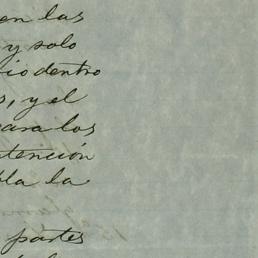 en las
y solo
io dentro
s, y el
para los
tención
bla la
partes